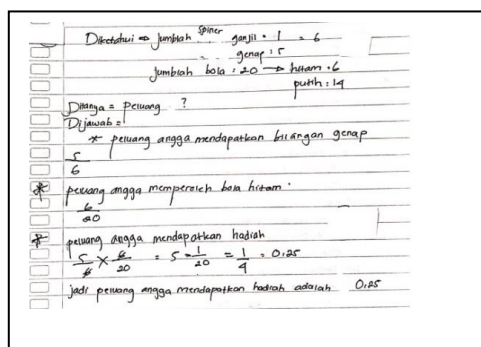 Diketahui ⇒ jumlah spiner ganjil = 1 = 6
genap : 5
jumlah bola : 20 → hitam = 6
putih : 14
Ditanya = peluang ?
Dijawab =
* peluang angga mendapatkan bilangan genap
5/6
* peluang angga memperoleh bola hitam.
6/20
* peluang angga mendapatkan hadiah
5/6 × 6/20 = 5 × 1/20 = 1/4 = 0,25
jadi peluang angga mendapatkan hadiah adalah 0,25